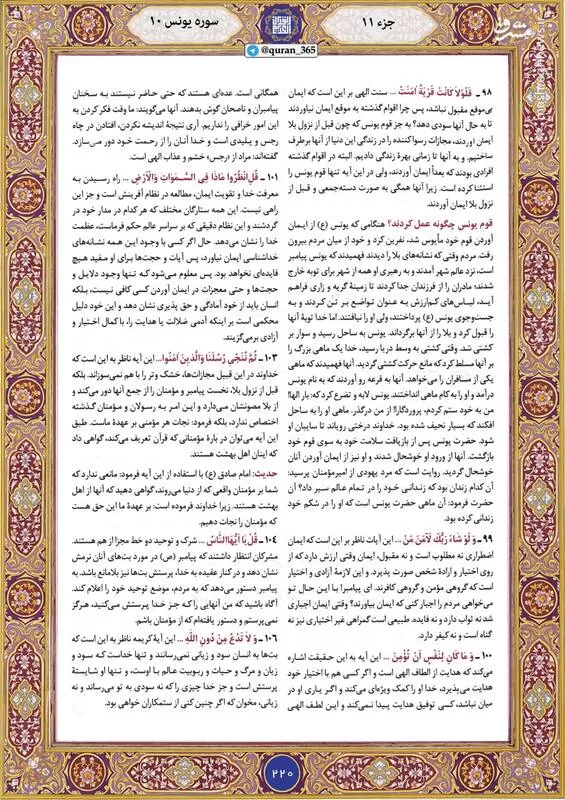 سوره یونس ۱۰
جزء ۱۱
@quran_365
۹۸ ـ فَلَوْلَا كَانَتْ قَرْيَةٌ آمَنَتْ ... سنت الهی بر این است که ایمان
بی‌موقع مقبول نباشد، پس چرا اقوام گذشته به موقع ایمان نیاوردند
تا به حال آنها سودی دهد؟ به جز قوم یونس که چون قبل از نزول بلا
ایمان آوردند، مجازات رسواکننده را در زندگی این دنیا از آنها برطرف
ساختیم و به آنها تا زمانی بهرۀ زندگی دادیم. البته در اقوام گذشته
افرادی بودند که بعداً ایمان آوردند، ولی در این آیه تنها قوم یونس را
استثنا کرده است. زیرا آنها همگی به صورت دسته‌جمعی و قبل از
نزول بلا ایمان آوردند.
قوم یونس چگونه عمل کردند؟ هنگامی که یونس (ع) از ایمان
آوردن قوم خود مأیوس شد، نفرین کرد و از میان مردم بیرون
رفت. مردم وقتی که نشانه‌های بلا را دیدند فهمیدند که یونس پیامبر
است، نزد عالم شهر آمدند و به رهبری او همه از شهر برای توبه خارج
شدند؛ مادران را از فرزندان جدا کردند تا زمینۀ گریه و زاری فراهم
آید، لباس‌های کم‌ارزش به عنوان تواضع بر تن کردند و به
جست‌وجوی یونس (ع) پرداختند، ولی او را نیافتند. اما خدا توبۀ آنها
را قبول کرد و بلا را از آنها برگرداند. یونس به ساحل رسید و سوار بر
کشتی شد. وقتی کشتی به وسط دریا رسید، خدا یک ماهی بزرگ را
بر آنها مسلط کرد که مانع حرکت کشتی گردید. آنها فهمیدند که ماهی
یکی از مسافران را می‌خواهد. آنها به قرعه رو آوردند که به نام یونس
درآمد و او را به کام ماهی انداختند. یونس لابه و تضرع کرد که: بار الها!
من به خود ستم کردم، پروردگارا! از من درگذر. ماهی او را به ساحل
افکند که بسیار نحیف شده بود. خداوند درختی رویاند تا سایبان او
شود. حضرت یونس پس از بازیافت سلامت خود به سوی قوم خود
بازگشت. آنها از ورود او خوشحال شدند و او نیز از ایمان آوردن آنان
خوشحال گردید. روایت است که مرد یهودی از امیرمؤمنان پرسید:
آن کدام زندان بود که زندانی خود را در تمام عالم سیر داد؟ آن
حضرت فرمود: آن ماهی حضرت یونس است که او را در شکم خود
زندانی کرده بود.
۹۹ ـ وَ لَوْ شَاءَ رَبُّكَ لَآمَنَ مَنْ ... این آیات ناظر بر این است که ایمان
اضطراری نه مطلوب است و نه مقبول، ایمان وقتی ارزش دارد که از
روی اختیار و ارادۀ شخص صورت پذیرد. و این لازمۀ آزادی و اختیار
است که گروهی مؤمن و گروهی کافرند. ای پیامبر! با این حال تو
می‌خواهی مردم را اجبار کنی که ایمان بیاورند؟ وقتی ایمان اجباری
شد نه ثواب دارد و نه فایده. طبیعی است گمراهی غیر اختیاری نیز نه
گناه است و نه کیفر دارد.
۱۰۰ ـ وَ مَا كَانَ لِنَفْسٍ أَنْ تُؤْمِنَ ... این آیه به این حقیقت اشاره
می‌کند که هدایت از الطاف الهی است و اگر کسی هم با اختیار خود
هدایت می‌پذیرد، خدا او را کمک ویژه‌ای می‌کند و اگر یاری او در
میان نباشد، کسی توفیق هدایت پیدا نمی‌کند و این لطف الهی
همگانی است. عده‌ای هستند که حتی حاضر نیستند به سخنان
پیامبران و ناصحان گوش بدهند. آنها می‌گویند: ما وقت فکر کردن به
این امور خرافی را نداریم. آری نتیجۀ اندیشه نکردن، افتادن در چاه
رجس و پلیدی است و خدا آنان را از رحمت خود دور می‌سازد.
گفته‌اند: مراد از «رجس»، خشم و عذاب الهی است.
۱۰۱ ـ قُلِ انْظُرُوا مَاذَا فِی السَّمَوَاتِ وَالْأَرْضِ ... راه رسیدن به
معرفت خدا و تقویت ایمان، مطالعه در نظام آفرینش است و جز این
راهی نیست. این همه ستارگان مختلف که هر کدام در مدار خود در
گردشند و این نظام دقیقی که بر سراسر عالم حکم فرماست، عظمت
خدا را نشان می‌دهد. حال اگر کسی با وجود این همه نشانه‌های
خداشناسی ایمان نیاورد، پس آیات و حجت‌ها برای او مفید هیچ
فایده‌ای نخواهد بود. پس معلوم می‌شود که تنها وجود دلایل و
حجت‌ها و حتی معجزات در ایمان آوردن کسی کافی نیست، بلکه
انسان باید از خود آمادگی و حق پذیری نشان دهد و این خود دلیل
محکمی است بر اینکه آدمی ضلالت یا هدایت را، با کمال اختیار و
آزادی برمی‌گزیند.
۱۰۳ ـ ثُمَّ نُنَجِّی رُسُلَنَا وَالَّذِینَ آمَنُوا... این آیه ناظر به این است که
خداوند در این قبیل مجازات‌ها، خشک و تر را با هم نمی‌سوزاند. بلکه
قبل از نزول بلا، نخست پیامبر و مؤمنان را از جمع آنها دور می‌کند و
از بلا مصونشان می‌دارد و این امر به رسولان و مؤمنان گذشته
اختصاص ندارد، بلکه فرمود: نجات هر مؤمنی بر عهدۀ ماست. طبق
این آیه می‌توان در بارۀ مؤمنانی که قرآن تعریف می‌کند، گواهی داد
که اینان اهل بهشت هستند.
حدیث: امام صادق (ع) با استفاده از این آیه فرمود: مانعی ندارد که
شما بر مؤمنان واقعی که از دنیا می‌روند، گواهی دهید که آنها از اهل
بهشت هستند. زیرا خداوند فرموده است: بر عهدۀ ما این حق هست
که مؤمنان را نجات دهیم.
۱۰۴ ـ قُلْ یَا أَیُّهَا النَّاسُ ... شرک و توحید دو خط مجزا از هم هستند.
مشرکان انتظار داشتند که پیامبر (ص) در مورد بت‌های آنان نرمش
نشان دهد و در کنار عقیده به خدا، پرستش بت‌ها نیز بلامانع باشد. به
پیامبر دستور می‌دهد که به مردم، موضع توحید خود را اعلام کند.
آگاه باشید که من آنهایی را که جز خدا پرستش می‌کنید، هرگز
نمی‌پرستم و دستور یافته‌ام که از مؤمنان باشم.
۱۰۶ ـ وَ لَا تَدْعُ مِنْ دُونِ اللَّهِ ... این آیۀ کریمه ناظر به این است که
بت‌ها به انسان سود و زیانی نمی‌رسانند و تنها خداست که سود و
زیان و مرگ و حیات و ربوبیت عالم با اوست، و تنها او شایستۀ
پرستش است و جز خدا چیزی را که نه سودی به تو می‌رساند و نه
زیانی، مخوان که اگر چنین کنی از ستمکاران خواهی بود.
۲۲۰